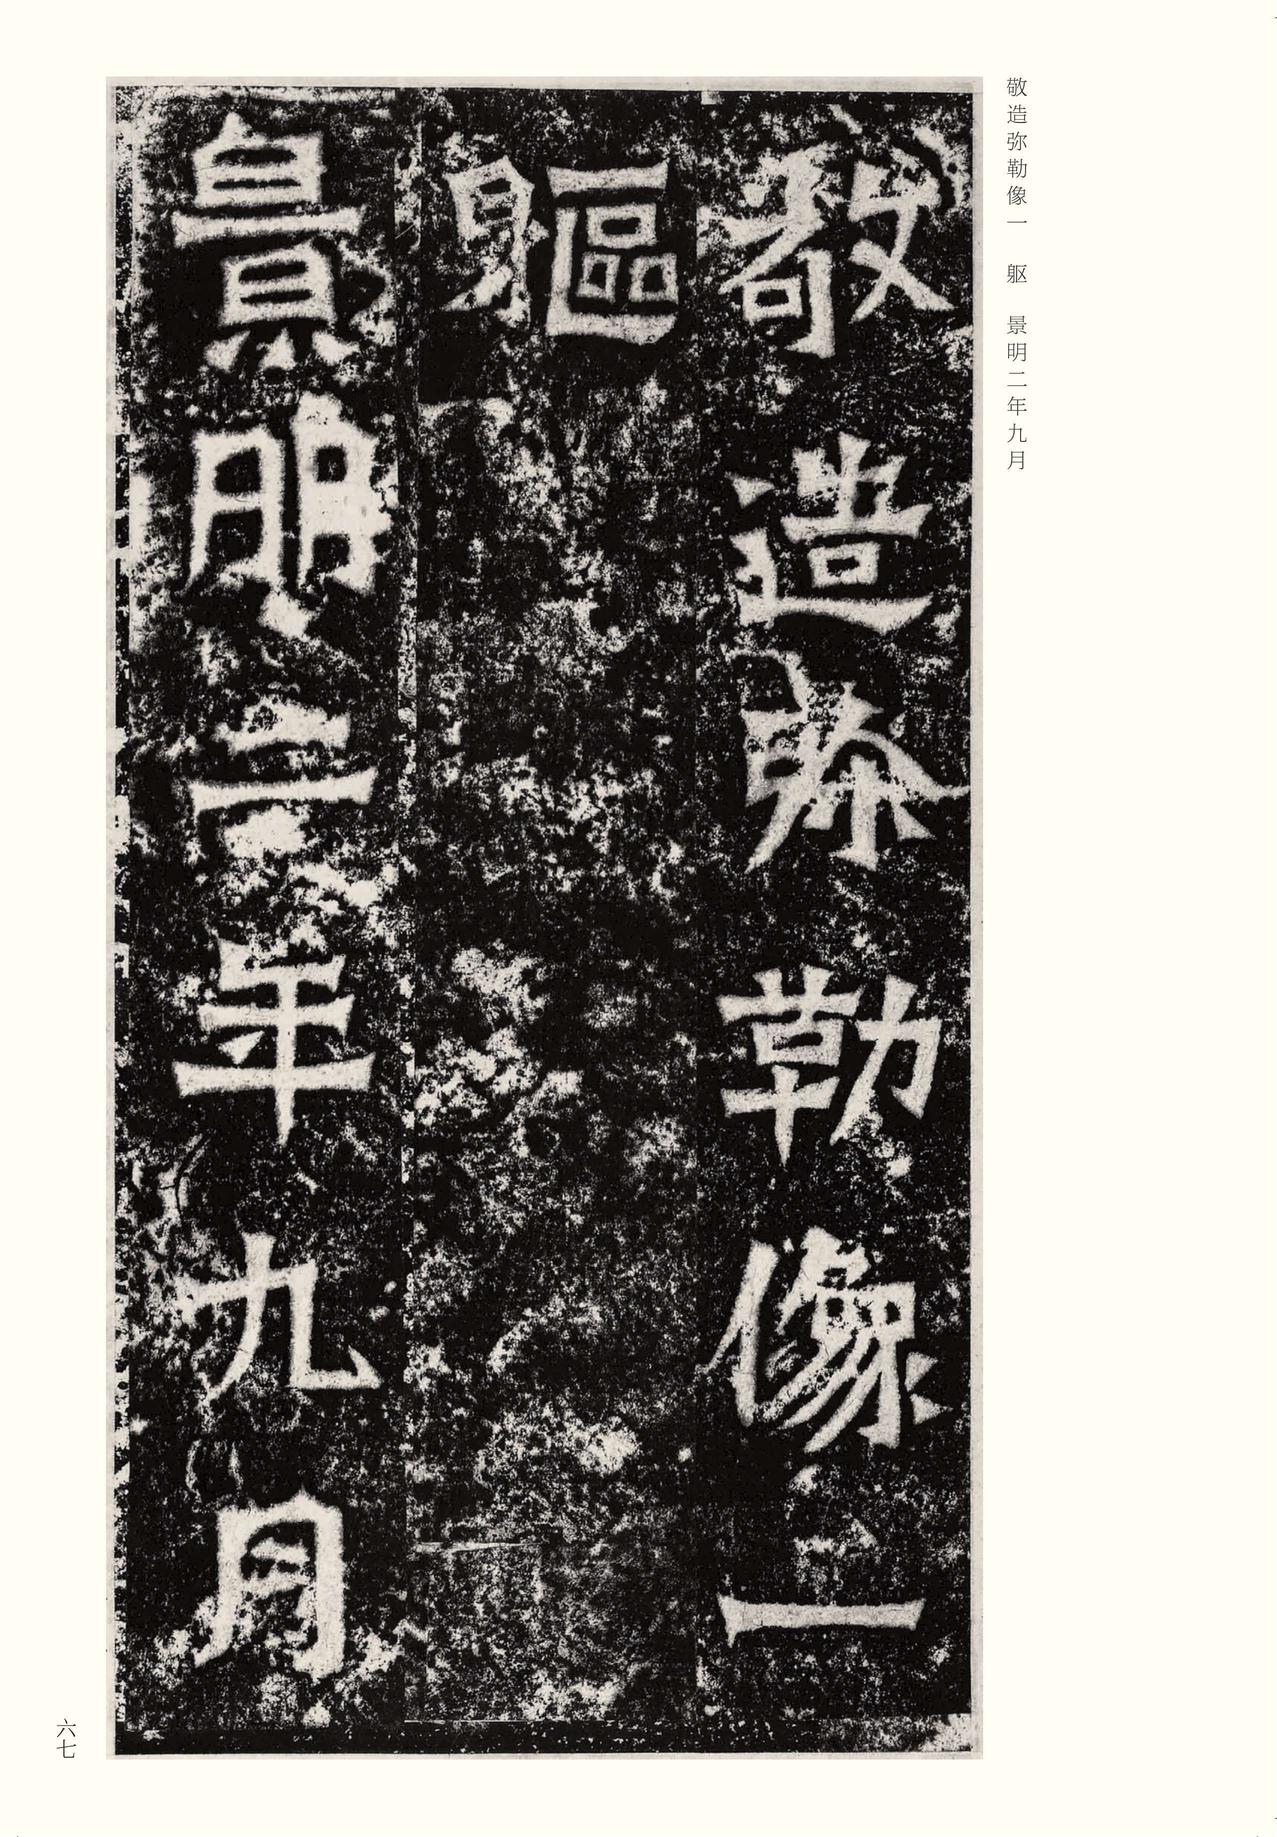 敬造弥勒像一　躯　景明二年九月
敬造弥勒像一
軀
景明二年九月
六七